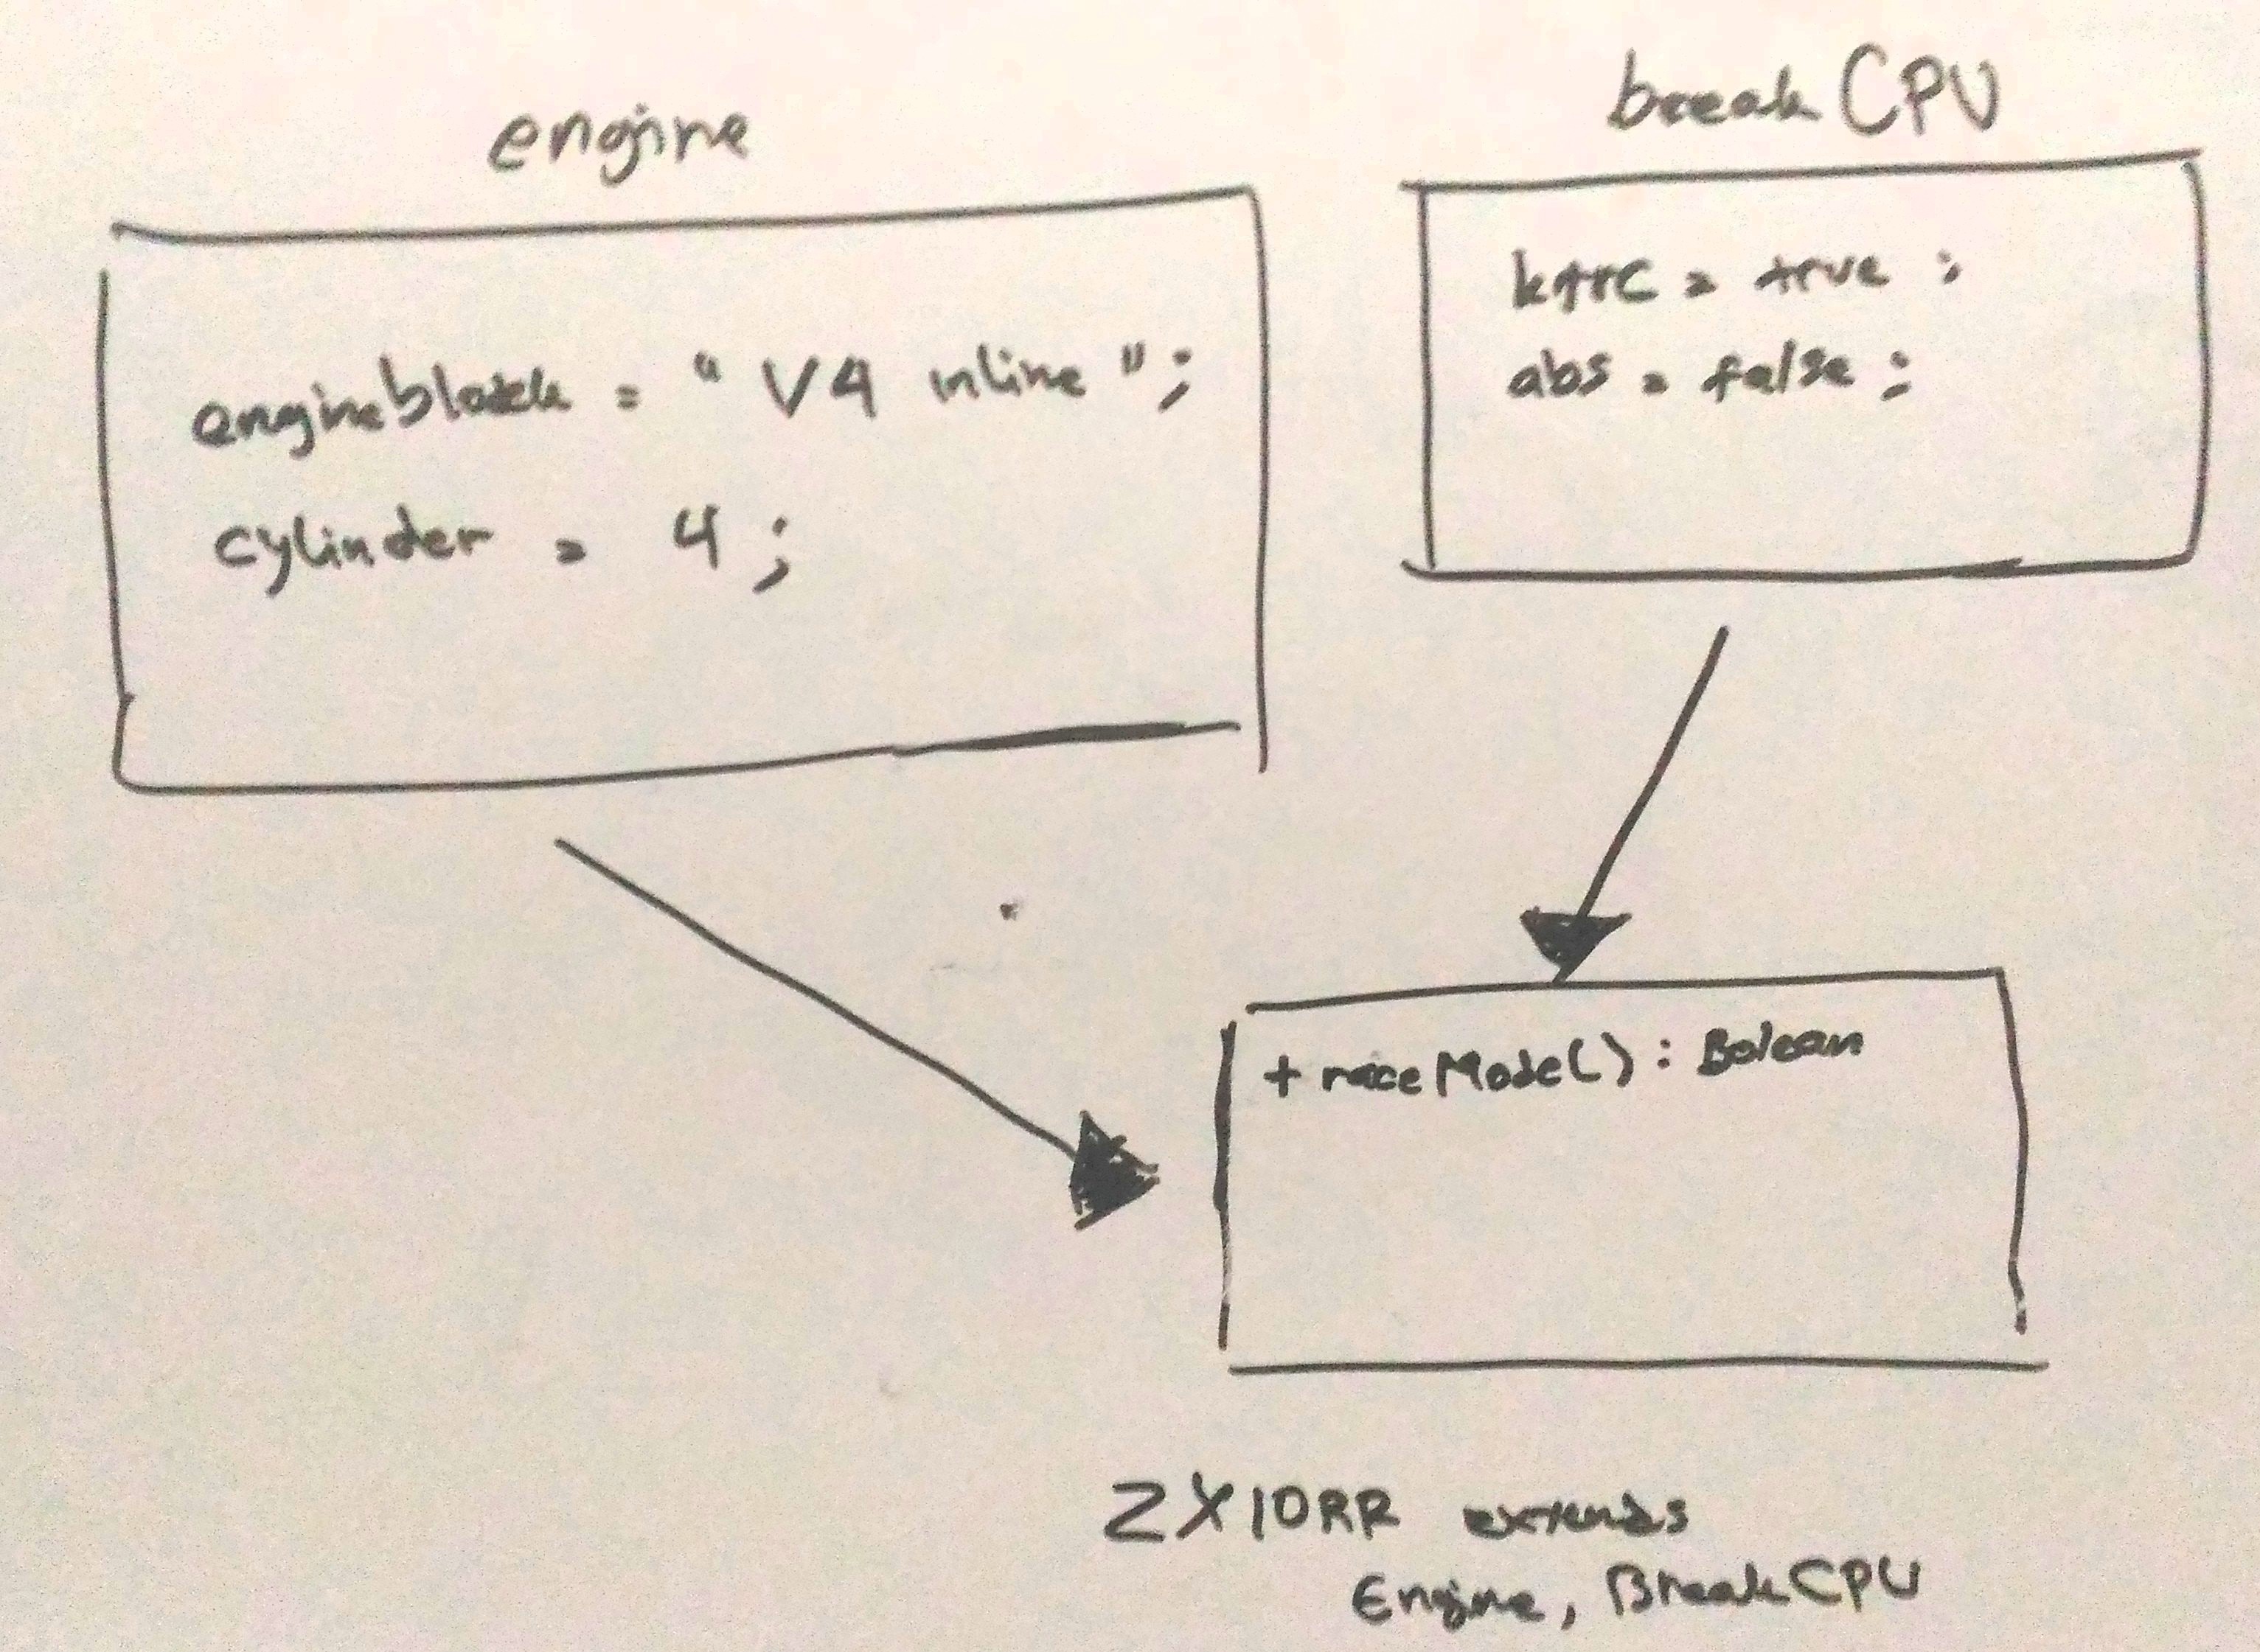 engine
engineblock = "V4 inline";
cylinder = 4;
break CPU
ktrc = true ;
abs = false ;
+ raceMode() : Bolean
ZX10RR extends
Engine, BreakCPU